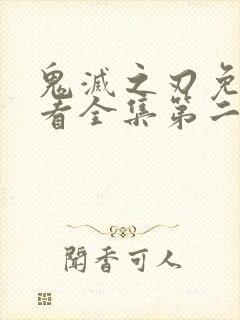 鬼滅之刃免
看全集第二
聞香可人